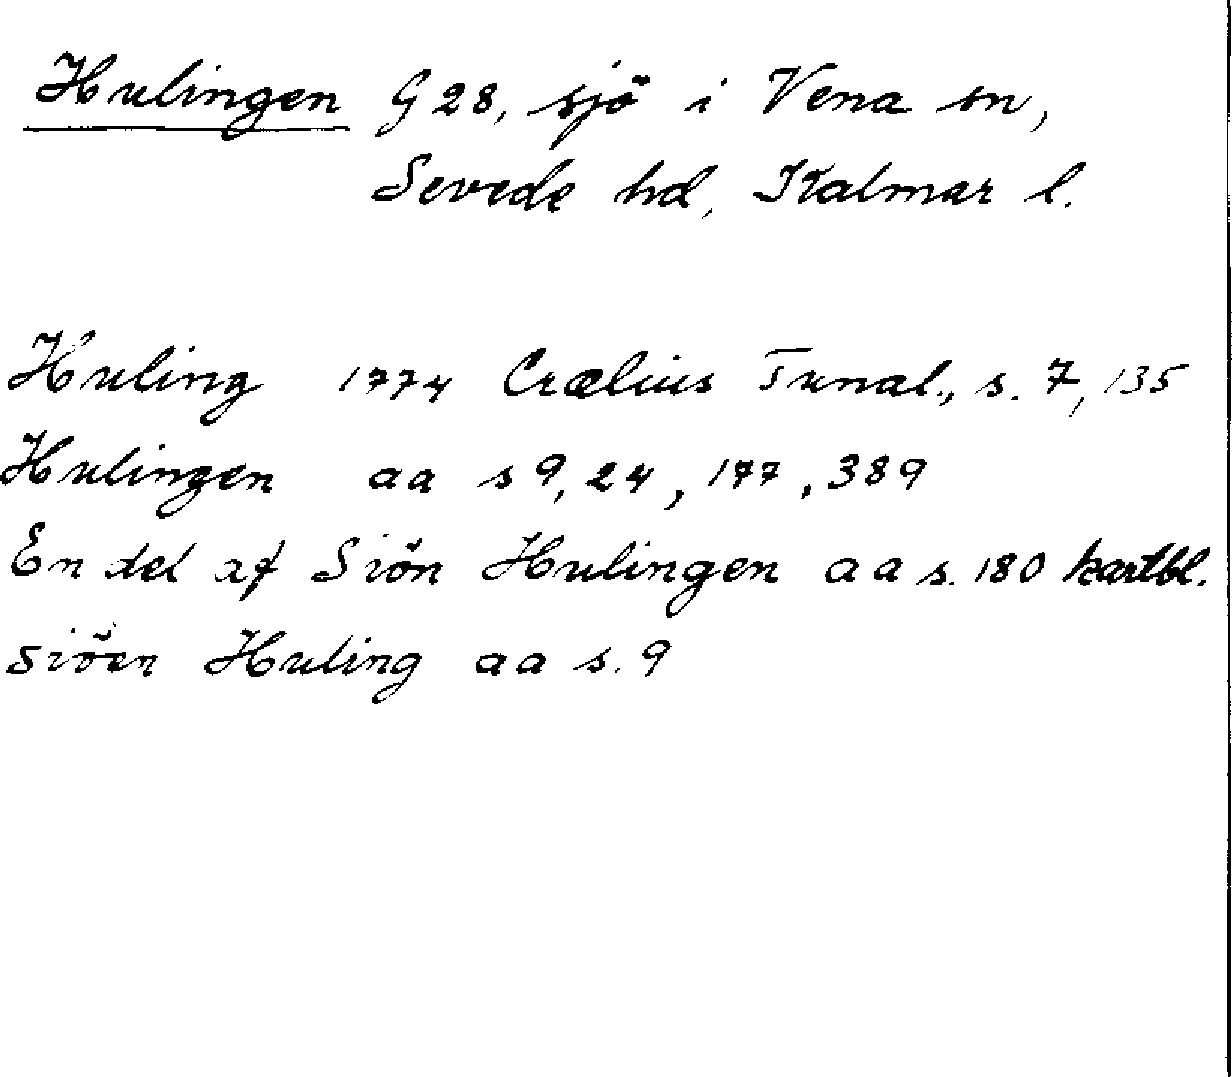 Hulingen G 28, sjö i Vena sn,
Sevede hd, Kalmar l.
Huling 1774 Crælius Tunal., s. 7, 135
Hulingen aa s 9, 24, 177, 389
En del af Siön Hulingen aa s. 180 kartbl.
siöen Huling aa s. 9